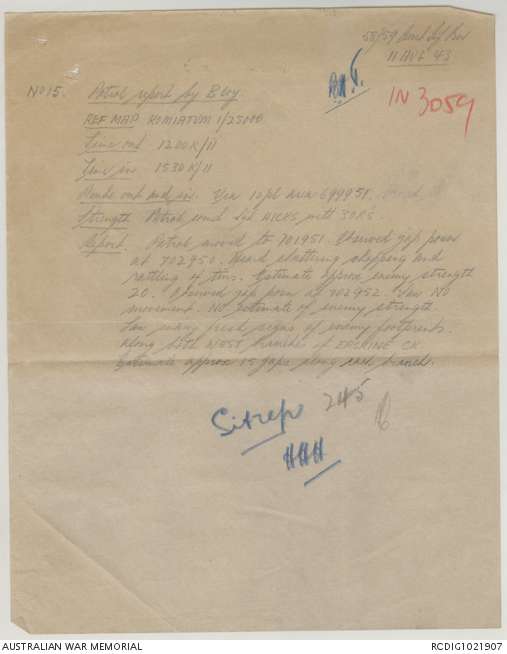 58/59 Inf Bn
11 AUG 43
IN 3059
No 15. Patrol report by B Coy
REF MAP KOMIATUM 1/25000
Time out 1200K/11
Time in 1530K/11
Route out and in. Via 10 pl area 699951.
Strength Patrol comd Sgt HICKS with 3 ORs
Report. Patrol moved to 701951. Observed jap posn
at 702950. Heard chattering chopping and
rattling of tins. Estimate approx enemy strength
20. Observed jap posn at 702952. Saw NO
movement. NO estimate of enemy strength.
Saw many fresh signs of enemy footprints
along both WEST branches of ERSKINE CK
Estimate approx 15 japs using each branch.
Sitrep 245
HHH
AUSTRALIAN WAR MEMORIAL
RCDIG1021907